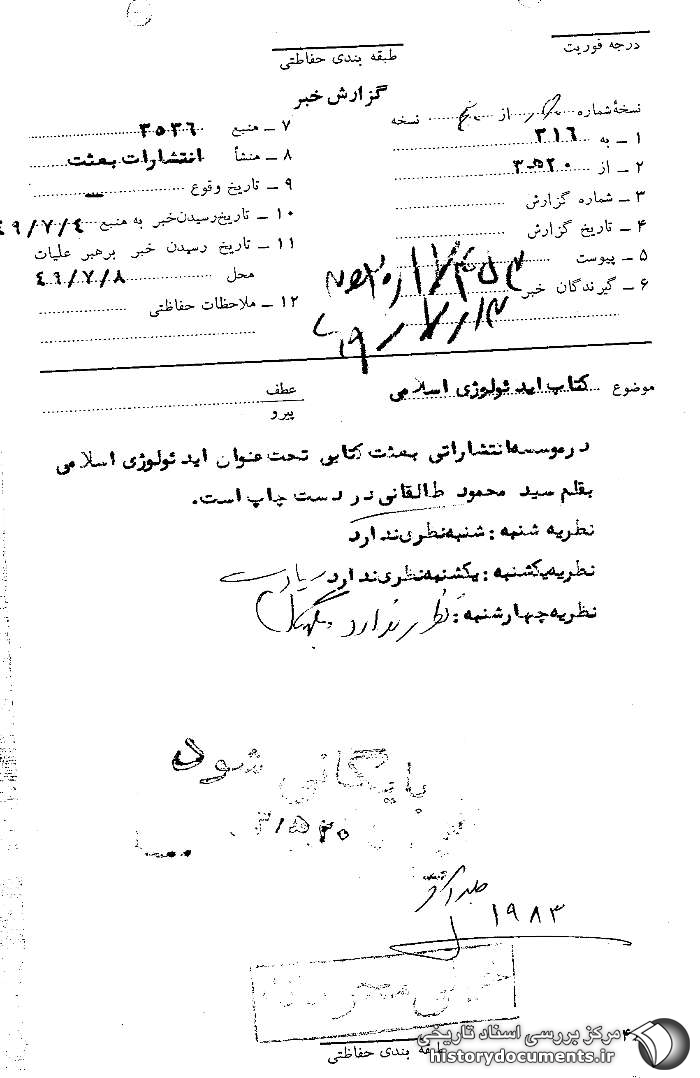 درجه فوریت
طبقه بندی حفاظتی
گزارش خبر
نسخهٔ شماره از نسخه
۱ ــ به ۳۱۶
۲ ــ از ۲۰ﻫ۳
۳ ــ شماره گزارش
۴ ــ تاریخ گزارش
۵ ــ پیوست
۶ ــ گیرندگان خبر
۷ ــ منبع ۳۵۳۶
۸ ــ منشأ انتشارات بعثت
۹ ــ تاریخ وقوع ــ
۱۰ ــ تاریخ رسیدن خبر به منبع ۴۹/۷/۴
۱۱ ــ تاریخ رسیدن خبر برهبر عملیات
محل ۴۹/۷/۸
۱۲ ــ ملاحظات حفاظتی
موضوع کتاب ایدئولوژی اسلامی
عطف
پیرو
درموسسه انتشاراتی بعثت کتابی تحت عنوان ایدئولوژی اسلامی
بقلم سید محمود طالقانی در دست چاپ است.
نظریه شنبه : شنبه نظری ندارد
نظریه یکشنبه : یکشنبه نظری ندارد
نظریه چهارشنبه : نظری ندارد
بایگانی شود
۳۱۵۲۰
۱۹۸۳
خیلی محرمانه
طبقه بندی حفاظتی
مرکز بررسی اسناد تاریخی
historydocuments.ir